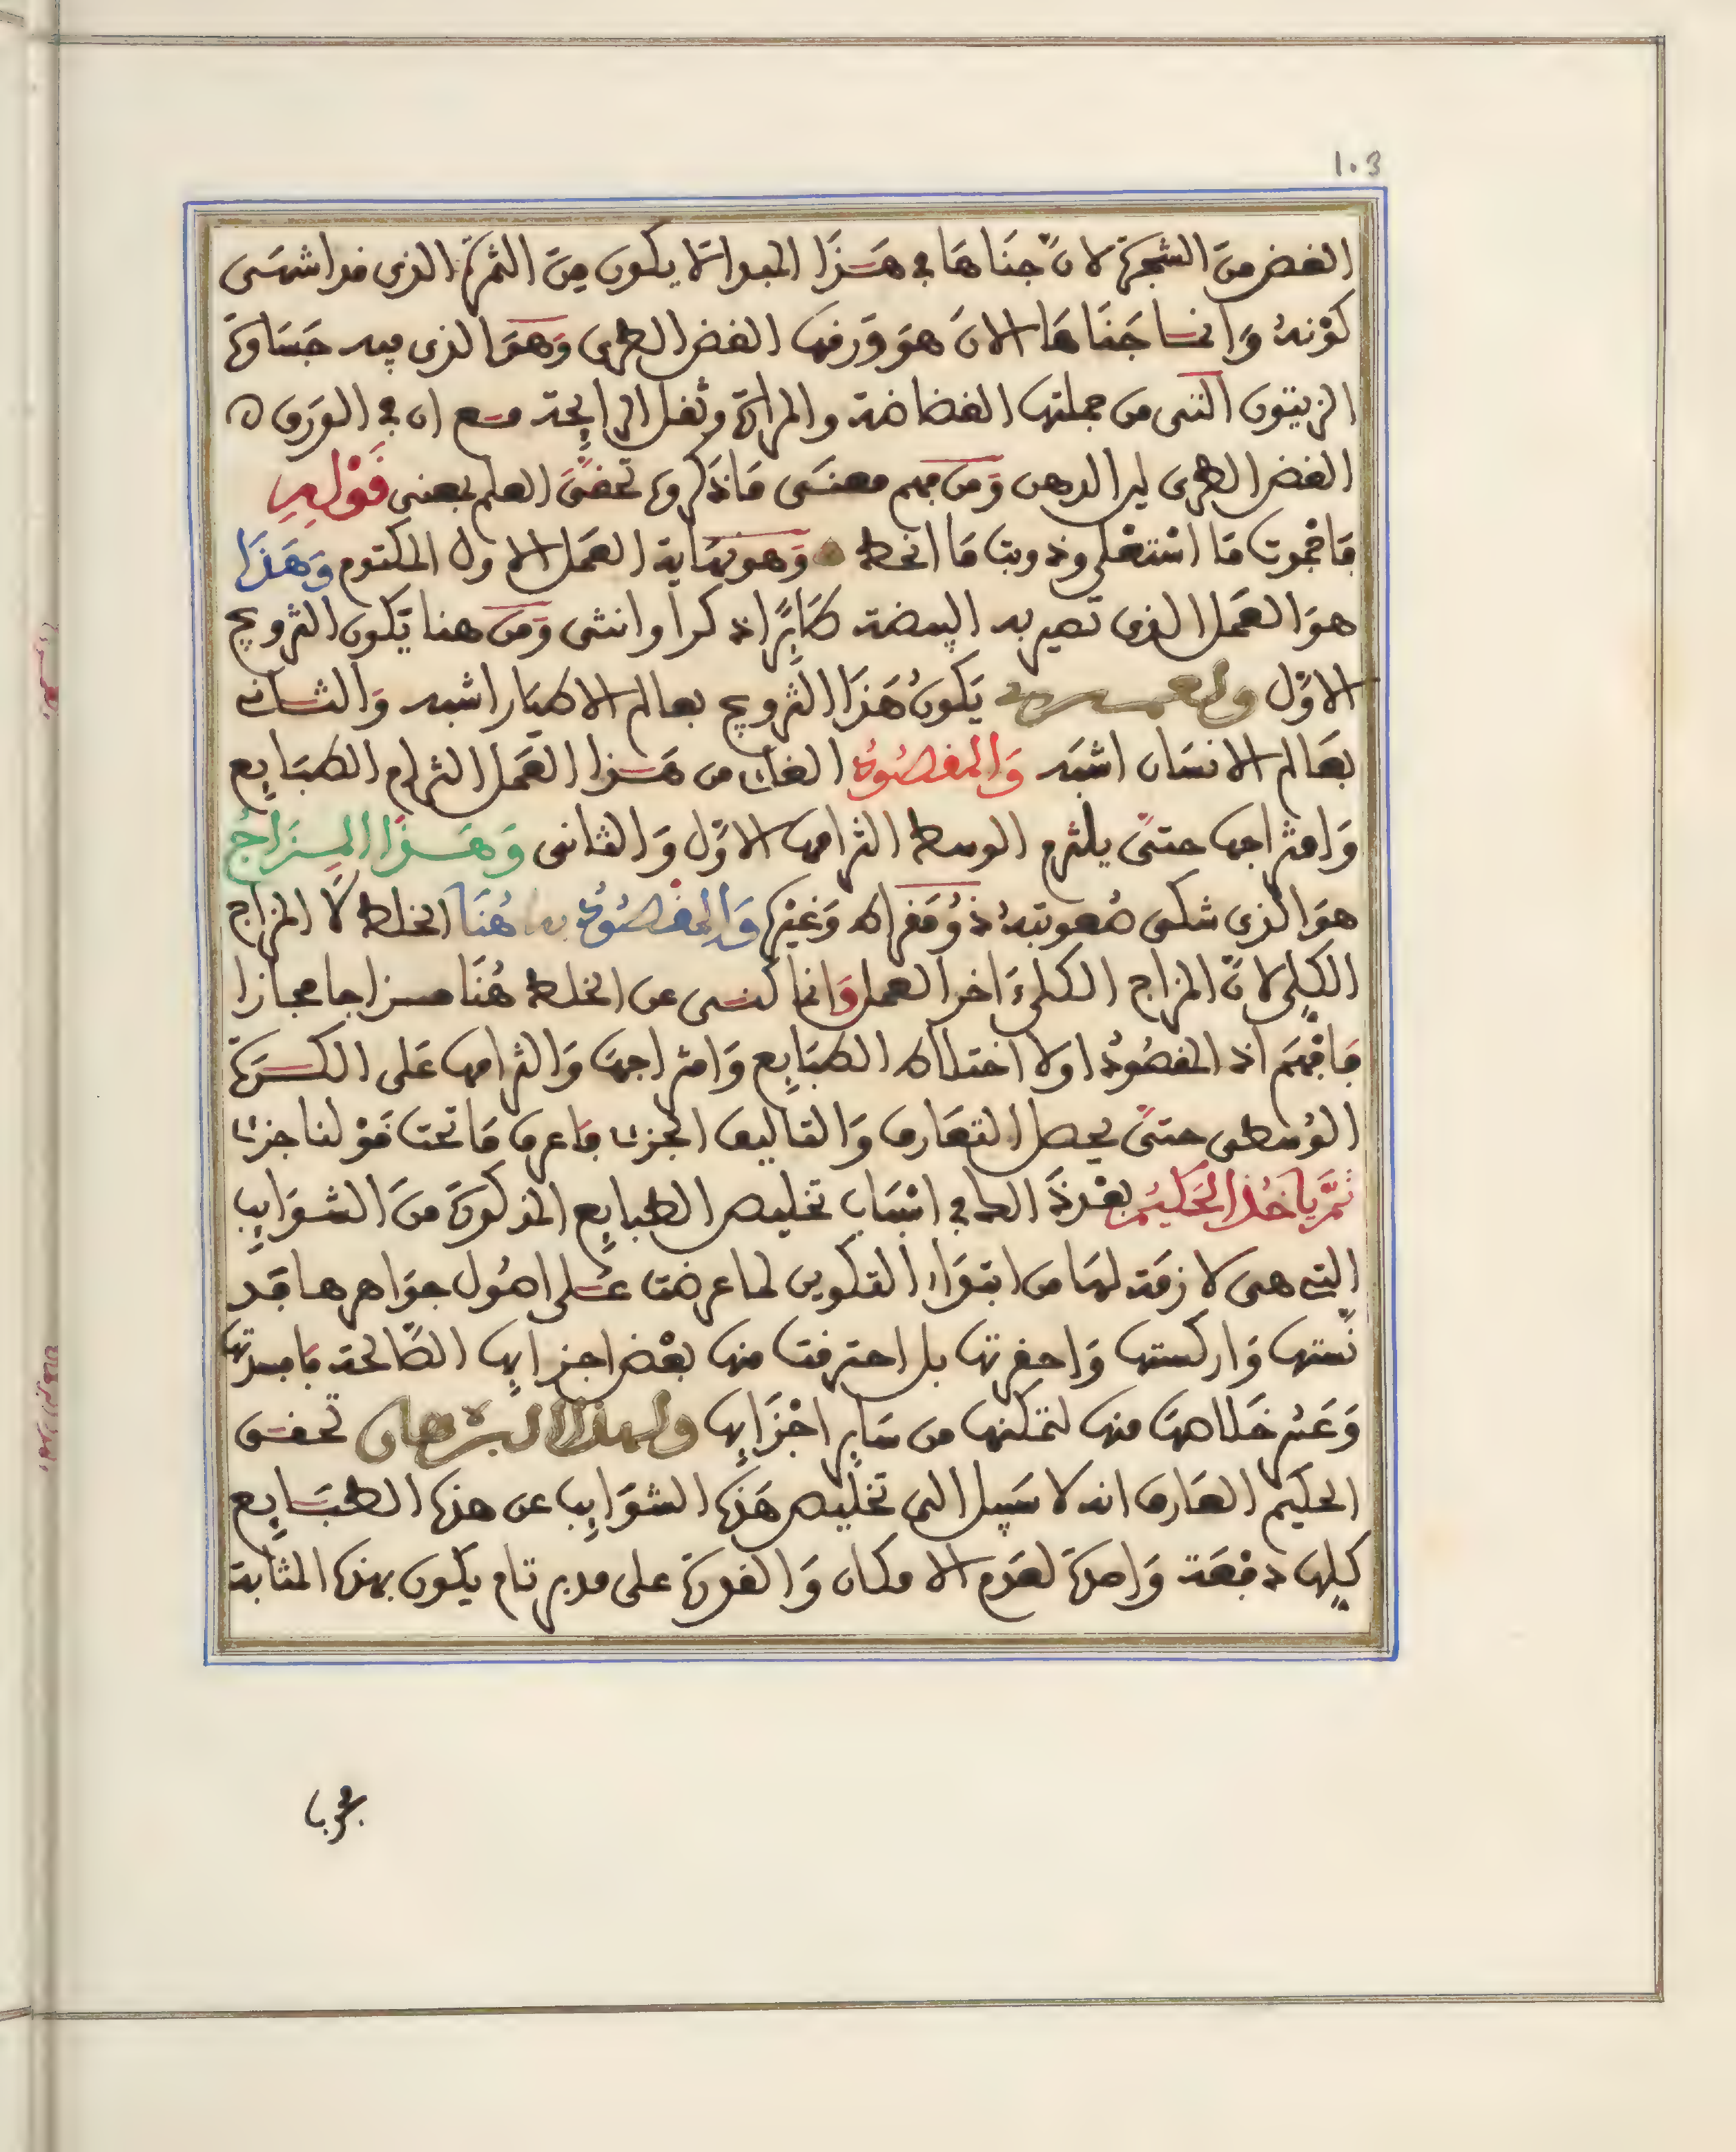 103
الغض من الشجرة لانّ جناها في هذا المبدا لا يكون من الثمرة الذي قد اشتهى
كونه وانما جناها الان هو ورقها الغض الطري وهو الذي فيه جساوة
الزيتون التي من جملتها الغضاضة والمرارة وثقل الرايحة مع ان في الورق
الغض الطري ليرا لدهن ومن فهم معنى ما ذكروه تحقق العلم بمعنى قولهم
فافجوت ما استعلى وذوبت ما انحط وهو نهاية العمل الاول المكتوم وهذا
هو العمل الذي تصير به البيضة طايرًا ذكرا وانثى ومن هنا يكون التزويج
الاوّل ولعمري يكون هذا التزويج بعالم الاطيار اشبه والثاني
بعالم الانسان اشبه والمقصود الغاى من هذا العمل التزام الطبايع
وامتزاجها حتىّ يلتزم الوسط التزامها الاوّل والثاني وهذا المزاج
هو الذي شكى صعوبته ذومقراط وغيره والمقصود به هنا الخلط لا المزاج
الكلي لانّ المزاج الكلي ءاخر العمل وانما كنى عن الخلط هنا مزاجا مجازا
فافهم اذ المقصود اولا اختلاط الطبايع وامتزاجها والتزامها على الكسرة
الوسطى حتىّ يحصل التعارف والتاليف الجزى فاعرف ما تحت قولنا جزى
ثمّ ياخذ الحكيم بعد ذلك في اسباب تخليص الطبايع المذكورة من الشوايب
التي هي لازمة لها من ابتداء التكوين لما عرضت على اصول جواهرها قد
نستها واركستها واحقرتها بل احترقت منها بعض اجزايها الصّالحة بافسدتها
وعسر خلاصها منها لتمكنها من ساير اجزايها ولهذا البرهان تحقق
الحكيم العارف انه لا سبيل الى تخليص هذه الشوايب عن هذه الطبايع
كلها دفعة واحدة لعدم الامكان والقدرة على مدبر تام يكون بهذه المثابة